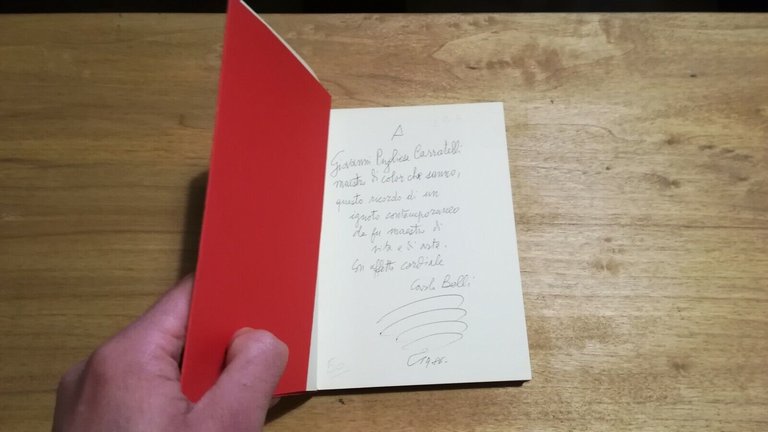 A
Giovanni Pugliese Carratelli
maestro di color che sanno,
questo ricordo di un
ignoto contemporaneo
che fu maestro di
vita e di arte.
Con affetto cordiale
Carlo Belli